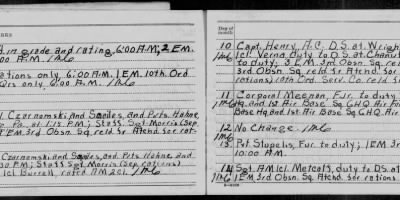 d in grade and rating, 6:00 A.M.; 2 E.M.
00 A.M. 1M6
ations only, 6:00 A.M.; 1 E.M. 10th. Ord
6:00 A.M. 1M6
l Czarnomski, and Pvts. Hahne, and
Pa. at 1:15 P.M.; Sta. Sgt. Morris (Sep.
E.M. 3rd Obsn. Sq. reld fr Atchd. for rat-
Czarnomski, and Pvts. Hahne, and
:30 P.M.; Sta. Sgt. Morris (Sep. rations)
1cl Burrell, rated AM 2cl. 1M6
Day of
month
10 Capt. Henry, A.C. D.S. at Wright
1M6 1cl. Verna duty to D.S. at Chanute
to duty; 3 E.M. 3rd Obsn. Sq. reld
3rd Obsn. Sq. reld fr Atchd. for
rations; 10th Ord. Serv. Co. reld fr
11 Corporal Meenon, Fur. to duty
1M6 Hq. and 1st Air Base Sq. G.H.Q. Air For
Base Hq. and 1st Air Base Sq. G.H.Q. Air
12 No Change. 1M6
1M6
13 Pvt Stopelis, Fur. to duty; 1 E.M. 3rd
10:00 A.M.
14 Sgt. AM 1cl Metcalf, duty to DS at
1M6 1 E.M. 3rd Obsn. Sq. Atchd. for rations